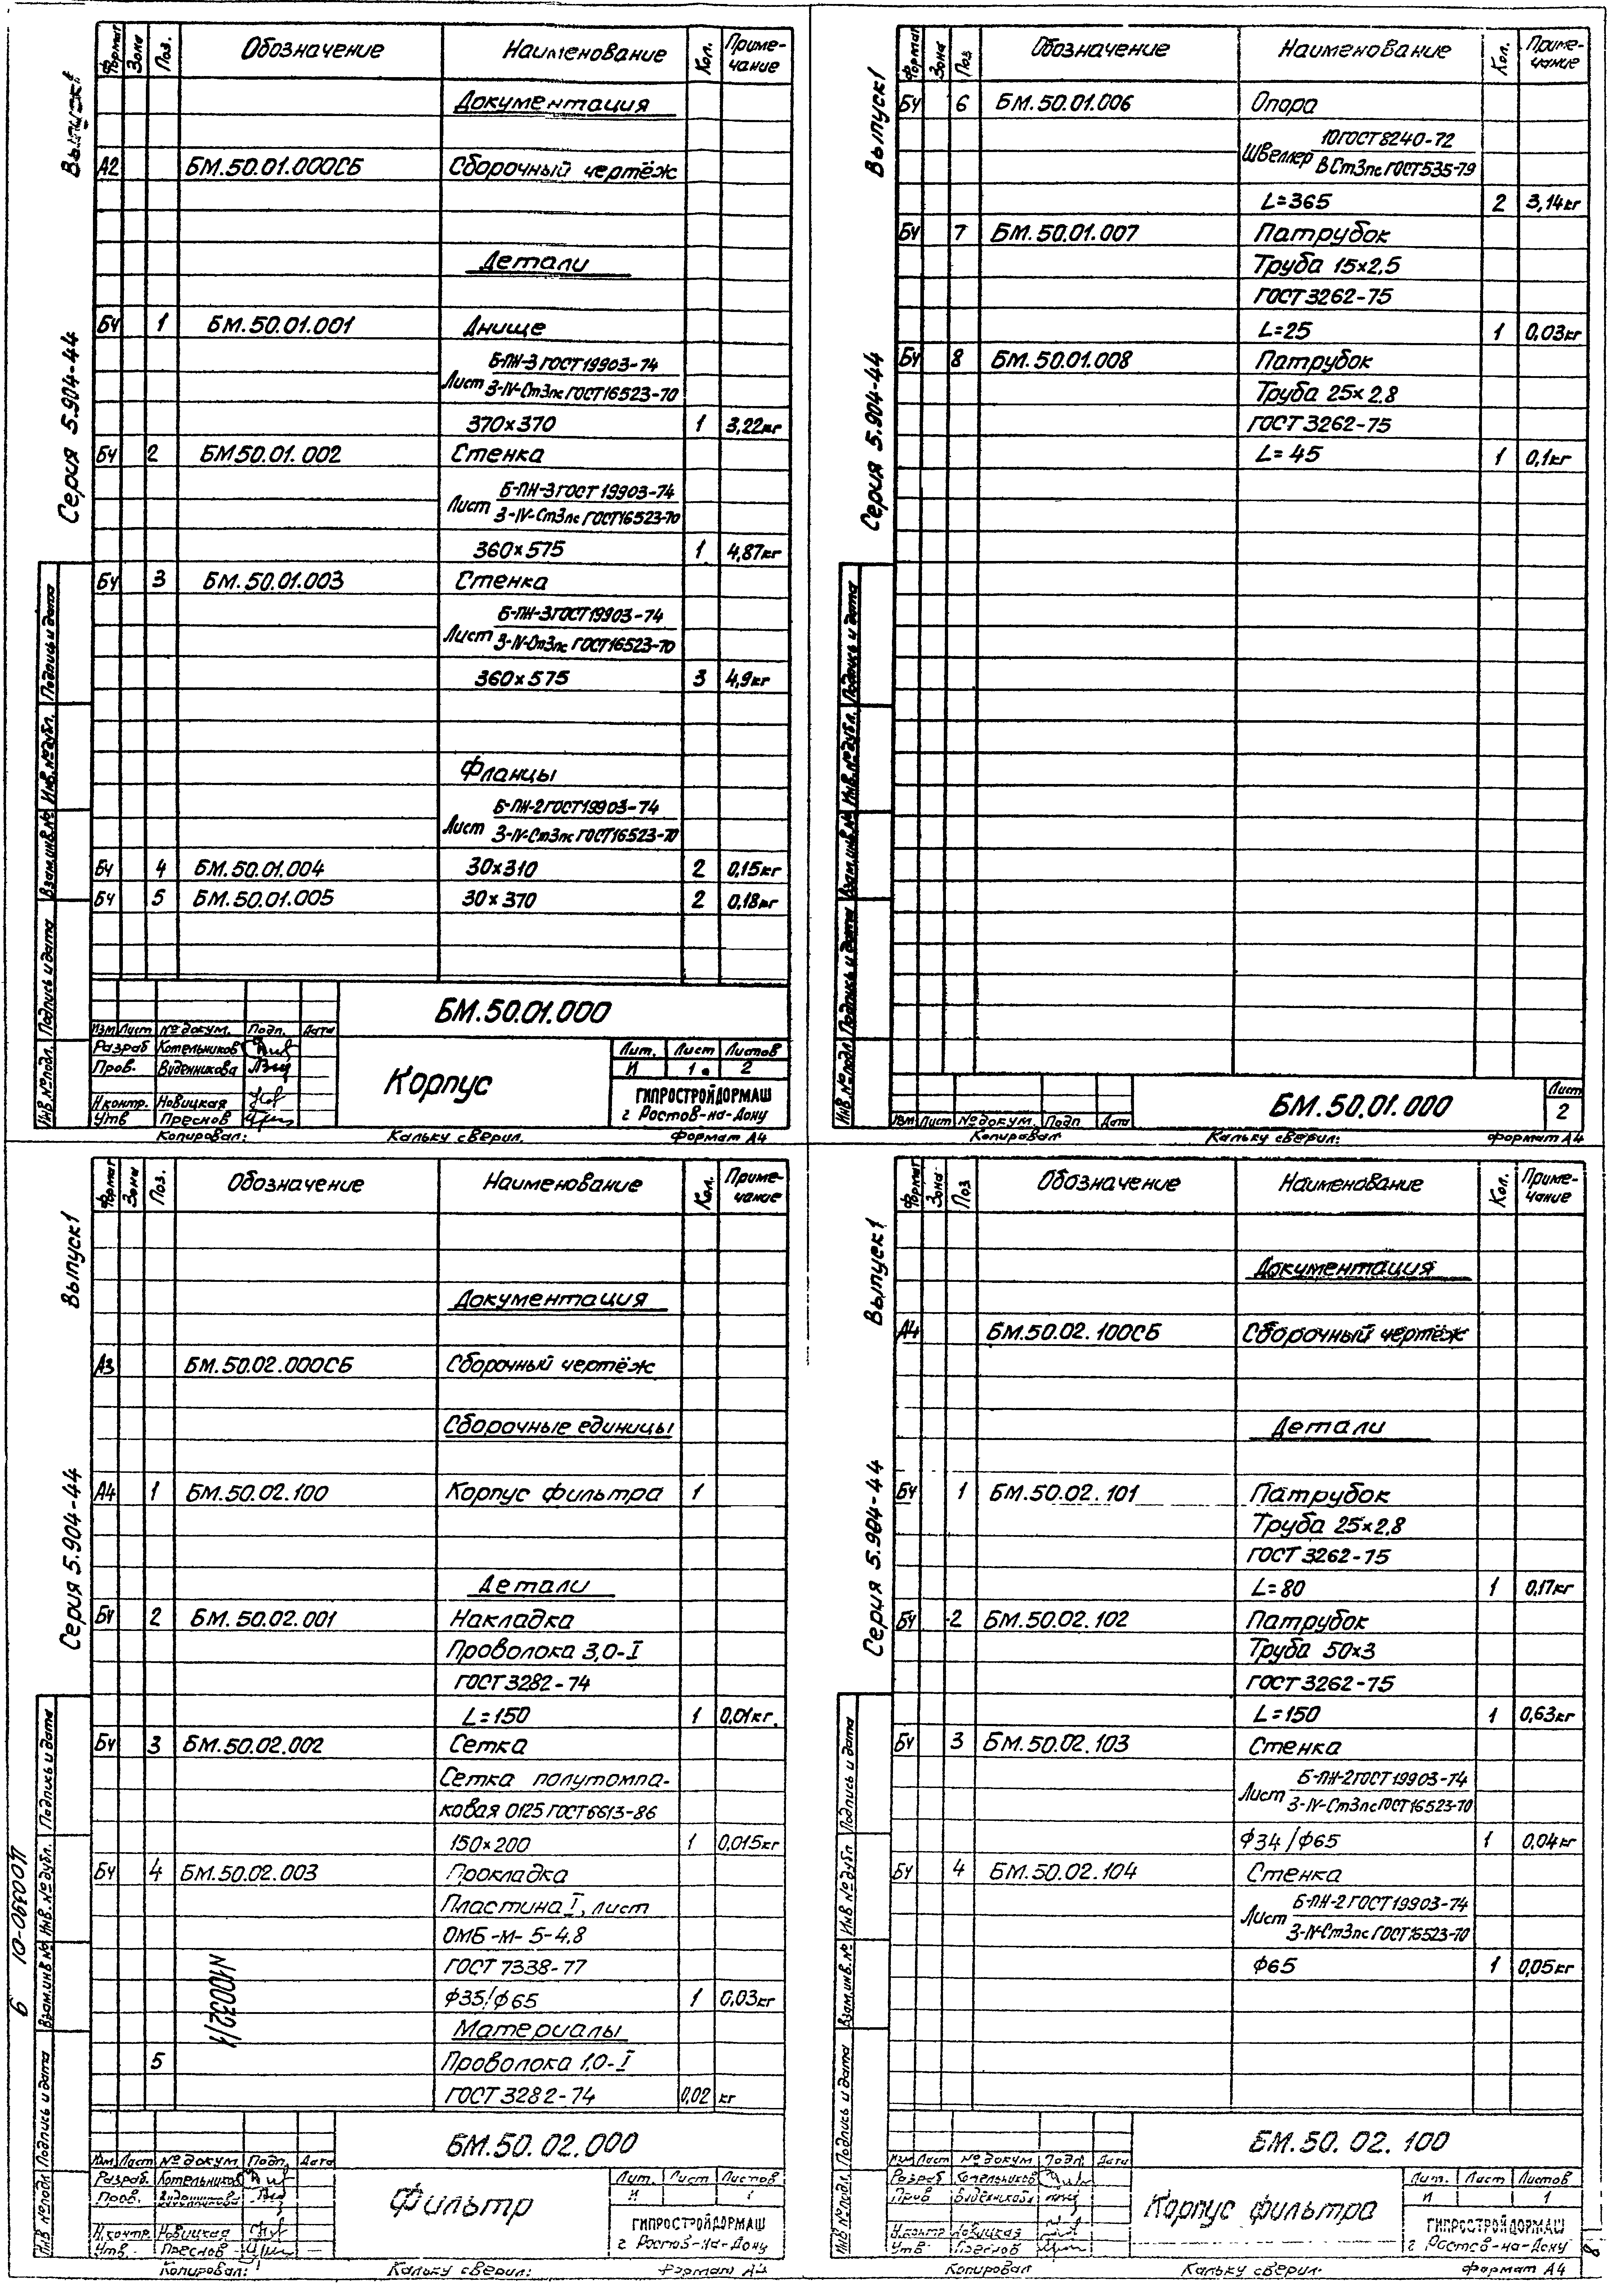 Выпуск 1
Серия 5.904-44
Формат Зона Поз. Обозначение Наименование Кол. Приме-
чание
Документация
А2 БМ.50.01.000СБ Сборочный чертёж
Детали
БЧ 1 БМ.50.01.001 Днище
Лист Б-ПН-3 ГОСТ 19903-74
3-IV-Ст3пс ГОСТ 16523-70
370×370 1 3,22кг
БЧ 2 БМ50.01.002 Стенка
Лист Б-ПН-3 ГОСТ 19903-74
3-IV-Ст3пс ГОСТ 16523-70
360×575 1 4,87кг
БЧ 3 БМ.50.01.003 Стенка
Лист Б-ПН-3 ГОСТ 19903-74
3-IV-Ст3пс ГОСТ 16523-70
360×575 3 4,9кг
Фланцы
Лист Б-ПН-2 ГОСТ 19903-74
3-IV-Ст3пс ГОСТ 16523-70
БЧ 4 БМ.50.01.004 30×310 2 0,15кг
БЧ 5 БМ.50.01.005 30×370 2 0,18кг
Инв.№подл. Подпись и дата Взам.инв.№ Инв.№дубл. Подпись и дата
БМ.50.01.000
Изм Лист №докум. Подп. Дата
Разраб Котельников
Пров. Виденникова
Н.контр. Новицкая
Утв Преснов
Корпус
Лит. Лист Листов
И 1 2
ГИПРОСТРОЙДОРМАШ
г Ростов-на-Дону
Копировал: Кальку сверил. Формат А4
Выпуск 1
Серия 5.904-44
Формат Зона Поз Обозначение Наименование Кол. Приме-
чание
БЧ 6 БМ.50.01.006 Опора
Швеллер 10 ГОСТ 8240-72
ВСт3пс ГОСТ 535-79
L=365 2 3,14кг
БЧ 7 БМ.50.01.007 Патрубок
Труба 15×2,5
ГОСТ 3262-75
L=25 1 0,03кг
БЧ 8 БМ.50.01.008 Патрубок
Труба 25×2,8
ГОСТ 3262-75
L=45 1 0,1кг
Инв.№подл Подпись и дата Взам.инв.№ Инв.№дубл. Подпись и дата
Изм Лист №докум. Подп Дата
БМ.50.01.000
Лист
2
Копировал Кальку сверил: Формат А4
Выпуск 1
Серия 5.904-44
Формат Зона Поз. Обозначение Наименование Кол. Приме-
чание
Документация
А3 БМ.50.02.000СБ Сборочный чертёж
Сборочные единицы
А4 1 БМ.50.02.100 Корпус фильтра 1
Детали
БЧ 2 БМ.50.02.001 Накладка
Проволока 3,0-I
ГОСТ 3282-74
L=150 1 0,01кг.
БЧ 3 БМ.50.02.002 Сетка
Сетка полутомпа-
ковая 0125 ГОСТ 6613-86
150×200 1 0,015кг
БЧ 4 БМ.50.02.003 Прокладка
Пластина I, лист
ОМБ-М-5-4,8
ГОСТ 7338-77
ф35/ф65 1 0,03кг
Материалы
5 Проволока 1,0-I
ГОСТ 3282-74 0,02 кг
Инв №подл Подпись и дата Взам.инв.№ Инв.№дубл. Подпись и дата
БМ.50.02.000
Изм. Лист №докум Подп. Дата
Разраб. Котельников
Пров. Виденникова
Н.контр Новицкая
Утв. Преснов
Фильтр
Лит. Лист Листов
И 1
ГИПРОСТРОЙДОРМАШ
г Ростов-на-Дону
Копировал: Кальку сверил: Формат А4
Выпуск 1
Серия 5.904-44
Формат Зона Поз Обозначение Наименование Кол. Приме-
чание
Документация
А4 БМ.50.02.100СБ Сборочный чертёж
Детали
БЧ 1 БМ.50.02.101 Патрубок
Труба 25×2,8
ГОСТ 3262-75
L=80 1 0,17кг
БЧ 2 БМ.50.02.102 Патрубок
Труба 50×3
ГОСТ 3262-75
L=150 1 0,63кг
БЧ 3 БМ.50.02.103 Стенка
Лист Б-ПН-2 ГОСТ 19903-74
3-IV-Ст3пс ГОСТ 16523-70
ф34/ф65 1 0,04кг
БЧ 4 БМ.50.02.104 Стенка
Лист Б-ПН-2 ГОСТ 19903-74
3-IV-Ст3пс ГОСТ 16523-70
ф65 1 0,05кг
Инв №подл. Подпись и дата Взам.инв.№ Инв №дубл Подпись и дата
БМ.50.02.100
Изм Лист №докум Подп. Дата
Разраб Котельников
Пров Виденникова
Н.контр Новицкая
Утв Преснов
Корпус фильтра
Лит. Лист Листов
И 1
ГИПРОСТРОЙДОРМАШ
г Ростов-на-Дону
Копировал Кальку сверил. Формат А4
8